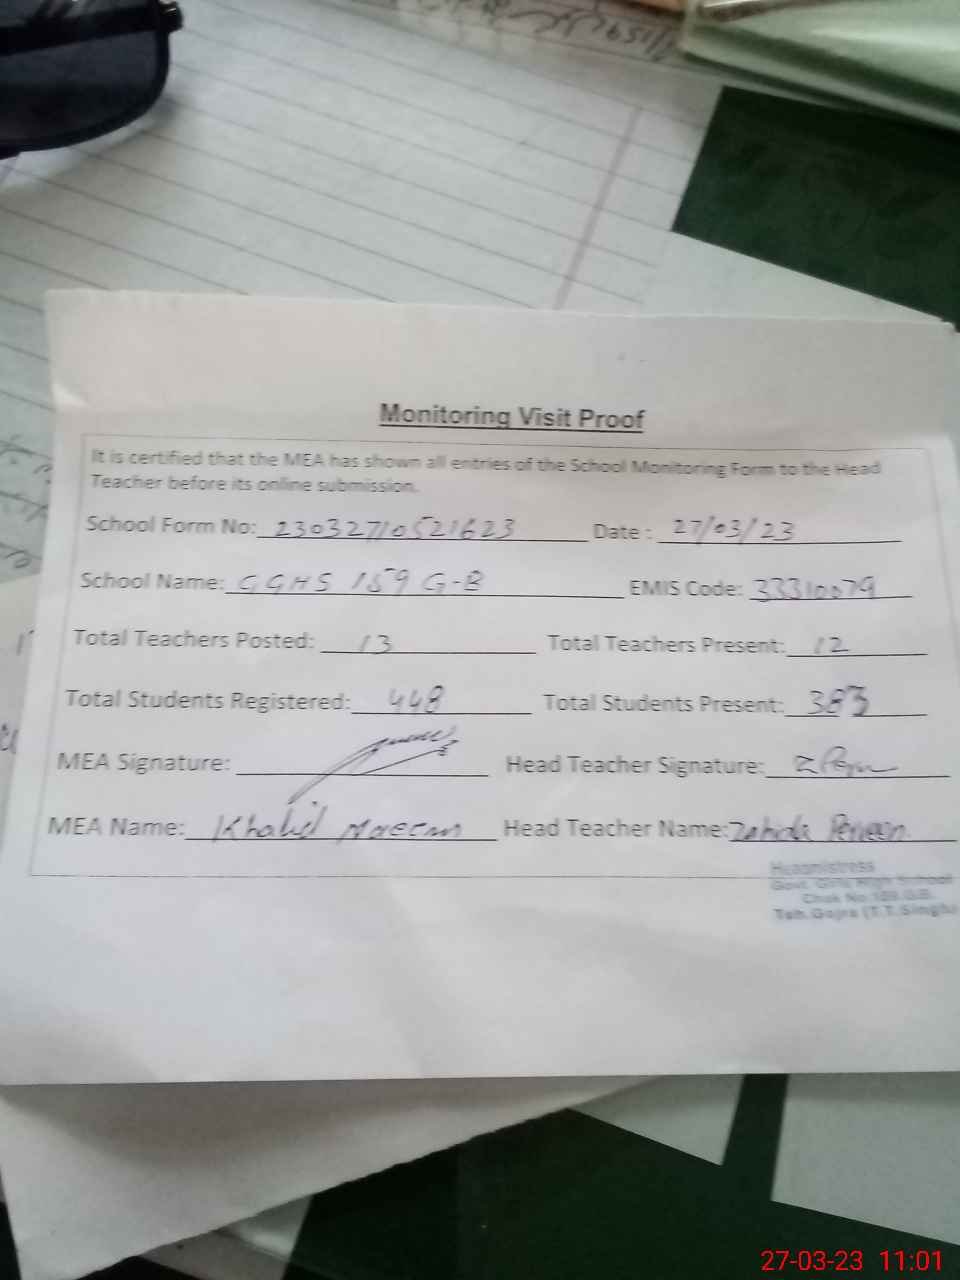 Monitoring Visit Proof
It is certified that the MEA has shown all entries of the School Monitoring Form to the Head
Teacher before its online submission.
School Form No: 23032710521623 Date : 27/03/23
School Name: GGHS 159 G-B EMIS Code: 33310079
Total Teachers Posted: 13 Total Teachers Present: 12
Total Students Registered: 448 Total Students Present: 383
MEA Signature: Head Teacher Signature:
MEA Name: Khalid Head Teacher Name: Zahida Perveen
Headmistress
Govt. Girls High School
Chak No.159.G.B.
Teh.Gojra (T.T.Singh)
27-03-23 11:01